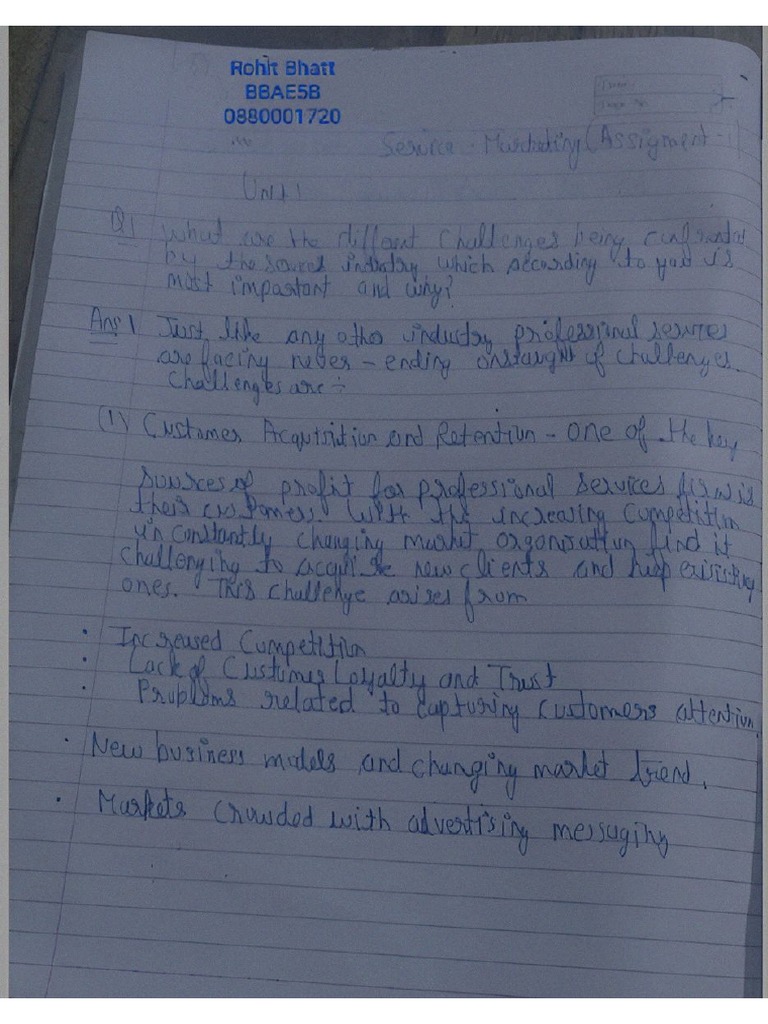 Rohit Bhatt
BBAE5B
0880001720
Service Marketing (Assigment - 1
Unit 1
Q1 What are the different challenges being confronted
by the industry which according to you is
most important and why?
Ans 1 Just like any other industry professional services
are facing never - ending of challenges.
Challenges are ÷
(1) Customer Acquisition and Retention - One of the key
Sources of profit for professional services firm is
their customers. With the increasing Competition
in constantly changing market organisation find it
challenging to acquire new clients and keep existing
ones. This challenge arises from
• Increased Competition
• Lack of Customer Loyalty and Trust
• Problems related to capturing customers attention.
• New business models and changing market trend.
• Markets crowded with advertising messaging